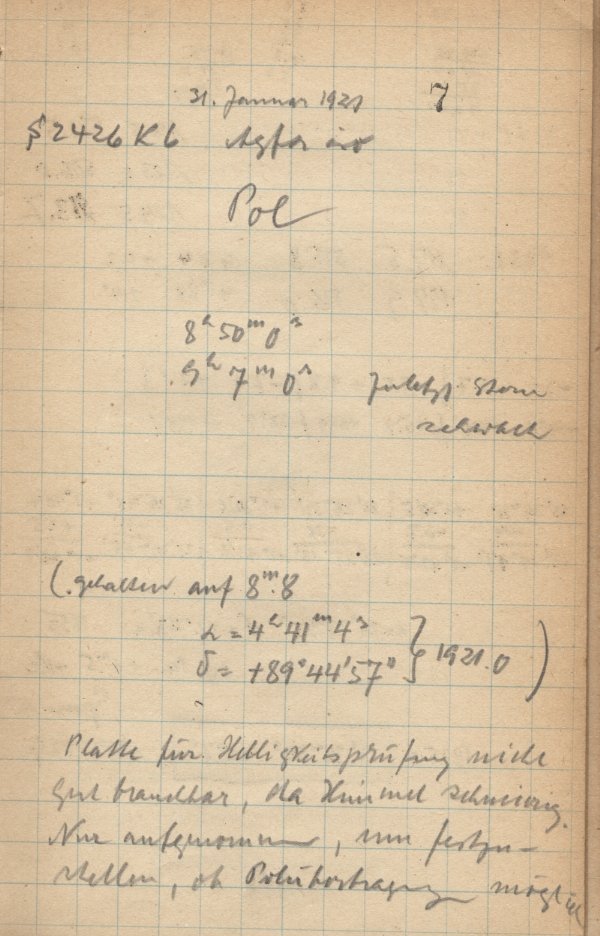 7
31. Januar 1921
2426 Kb Agfa iso
Pol
8ʰ 50ᵐ 0ˢ
9ʰ 7ᵐ 0ˢ zuletzt Stern
schwach
(gehalten auf 8ᵐ.8
α = 4ʰ 41ᵐ 4ˢ
δ = +89° 44' 57" } 1921.0 )
Platte für Helligkeitsprüfung nicht
gut brauchbar, da Himmel schmierig.
Nur aufgenommen, um festzu-
stellen, ob Polübertragung möglich